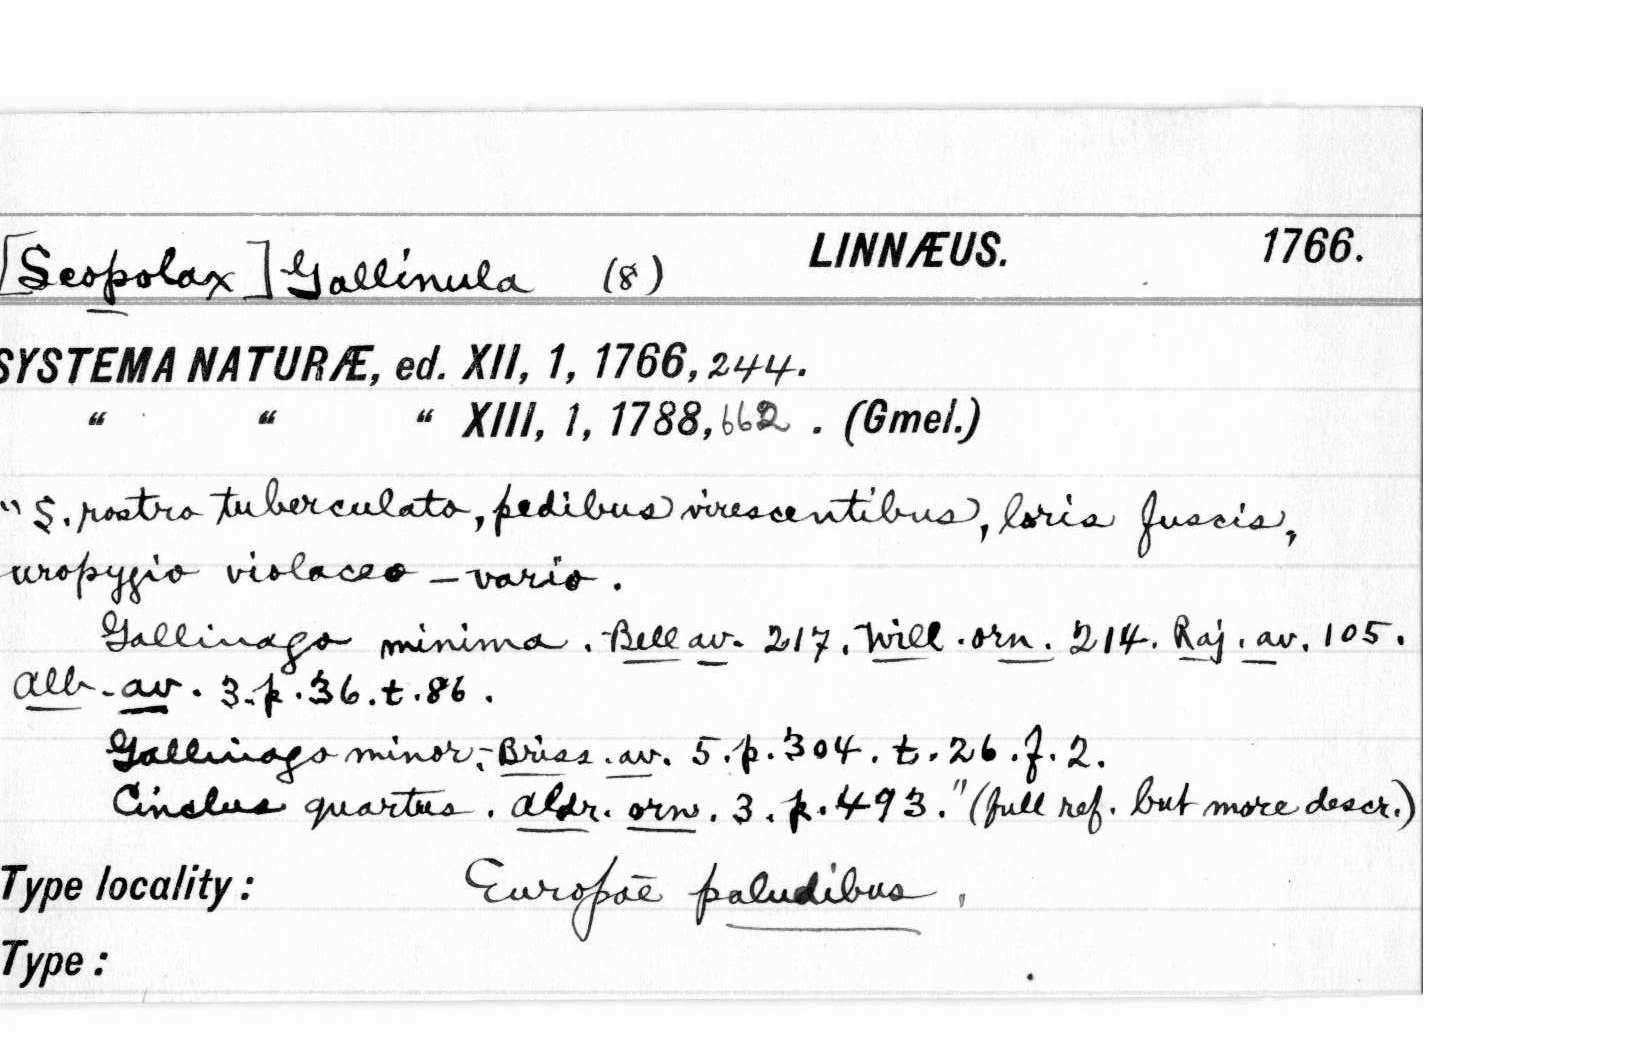 [Scopolax] Gallinula (8) LINNÆUS. 1766.
SYSTEMA NATURÆ, ed. XII, 1, 1766, 244.
“ “ “ XIII, 1, 1788, 662. (Gmel.)
"S. rostro tuberculato, pedibus virescentibus, loris fuscis,
uropygio violaceo - vario.
Gallinago minima. Bell av. 217. Will. orn. 214. Raj. av. 105.
Alb. av. 3. p. 36. t. 86.
Gallinago minor. Briss. av. 5. p. 304. t. 26. f. 2.
Cinclus quartus. Aldr. orn. 3. p. 493." (full ref. but more descr.)
Type locality: Europae paludibus.
Type: